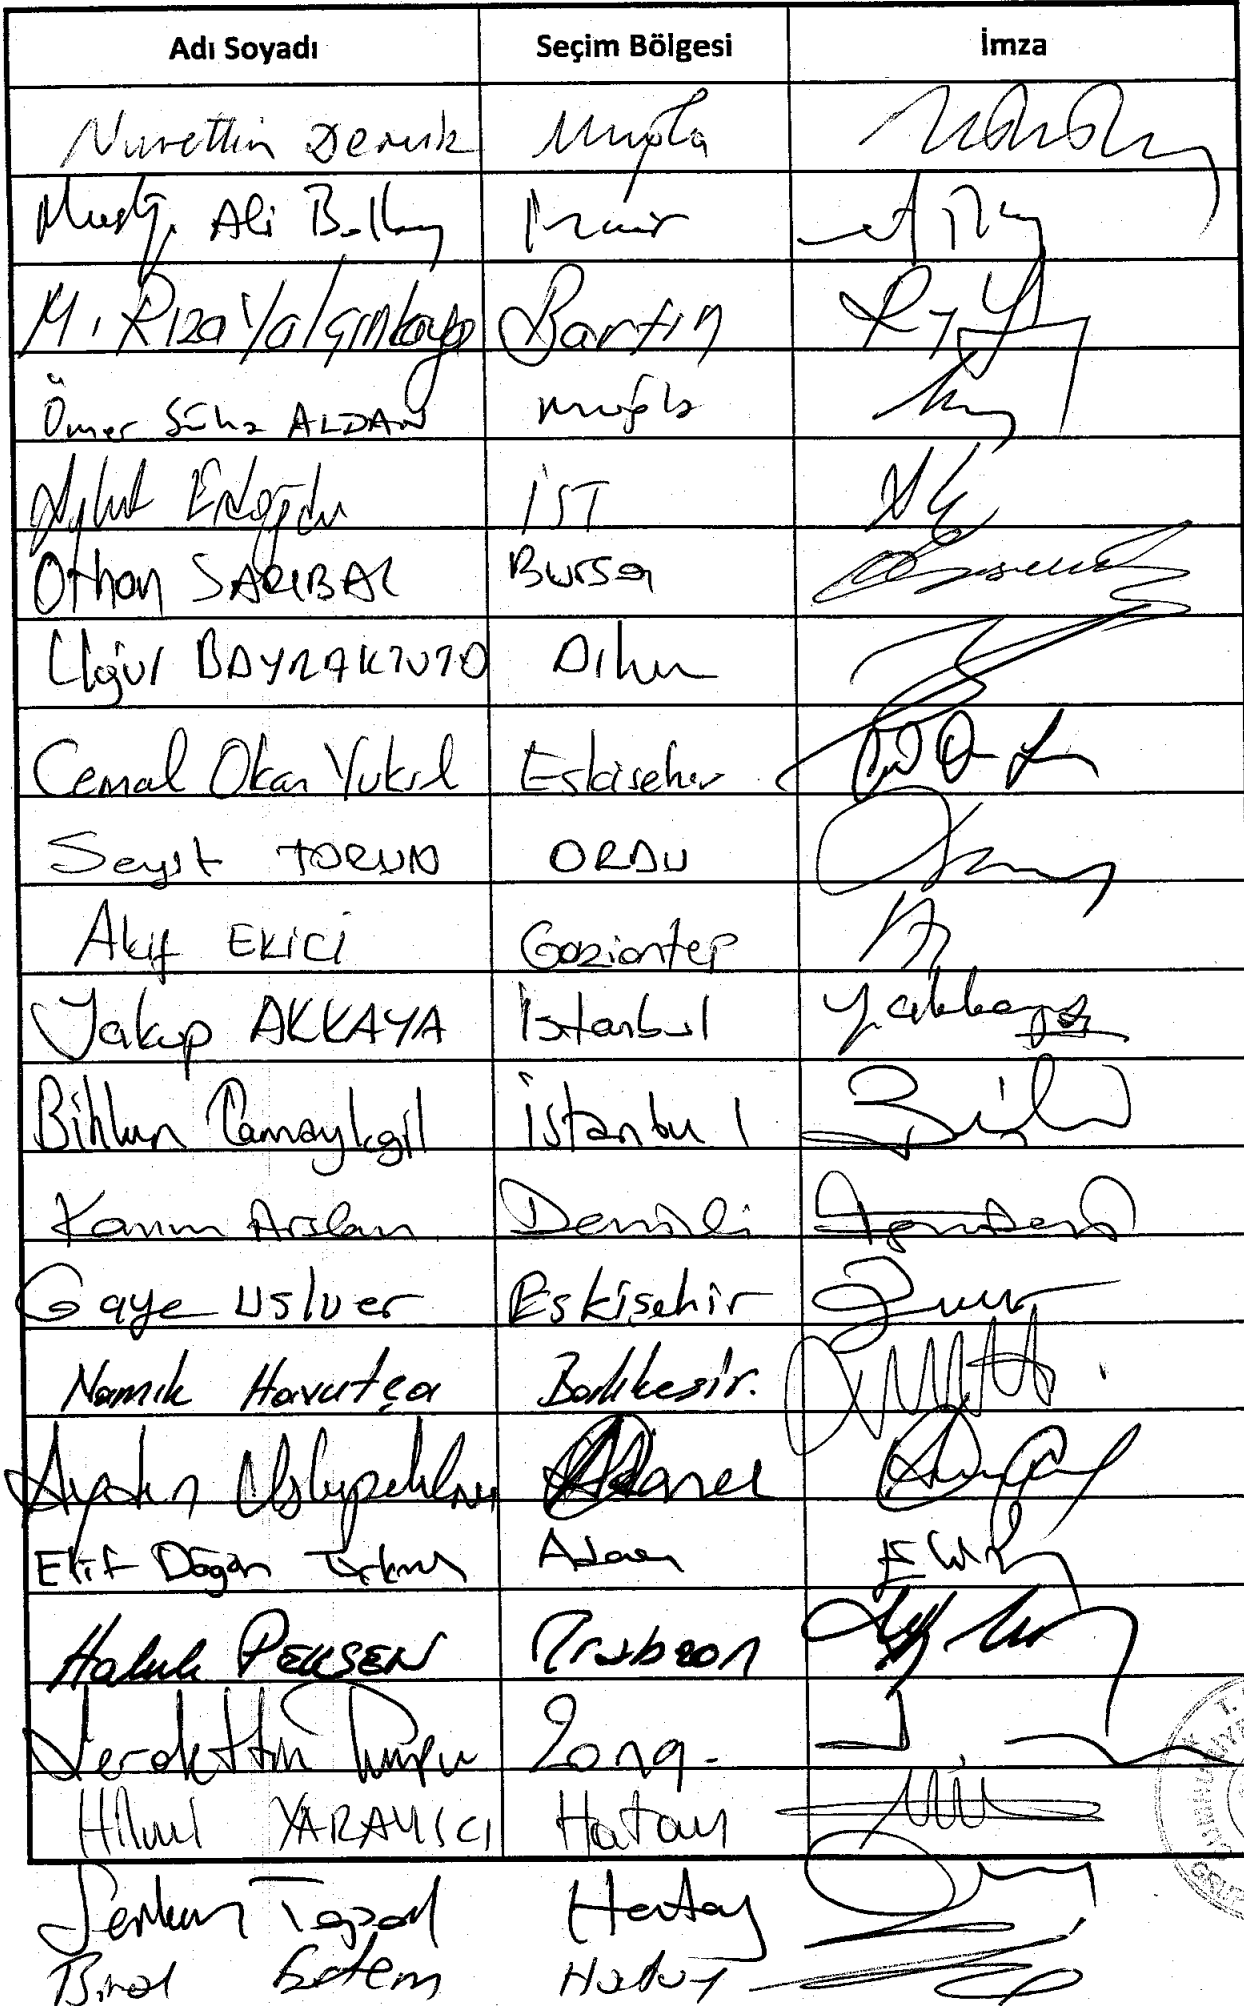 Adı Soyadı Seçim Bölgesi İmza
Nurettin Demir Muğla
Mustf. Ali Balbay İzmir
M. Rıza Yalçınkaya Bartın
Ömer Süha ALDAN Muğla
Aykut Erdoğdu İST
Orhan SARIBAL Bursa
Uğur BAYRAKTUTAN
Cemal Okan Yüksel Eskişehir
Seyit TORUN ORDU
Akif EKİCİ Gaziantep
Yakup AKKAYA İstanbul Y. Akkaya
Bihlun Tamaylıgil İstanbul
Kazım Arslan Denizli
Gaye Usluer Eskişehir
Namık Havutça Balıkesir.
Aydın Uslupehlivan Adana
Elif Doğan Türkmen Adana
Haluk PEKŞEN Trabzon
Şerafettin Turpcu Zong.
Hilmi YARAYICI Hatay
Serkan Topal Hatay
Birol Ertem Hatay